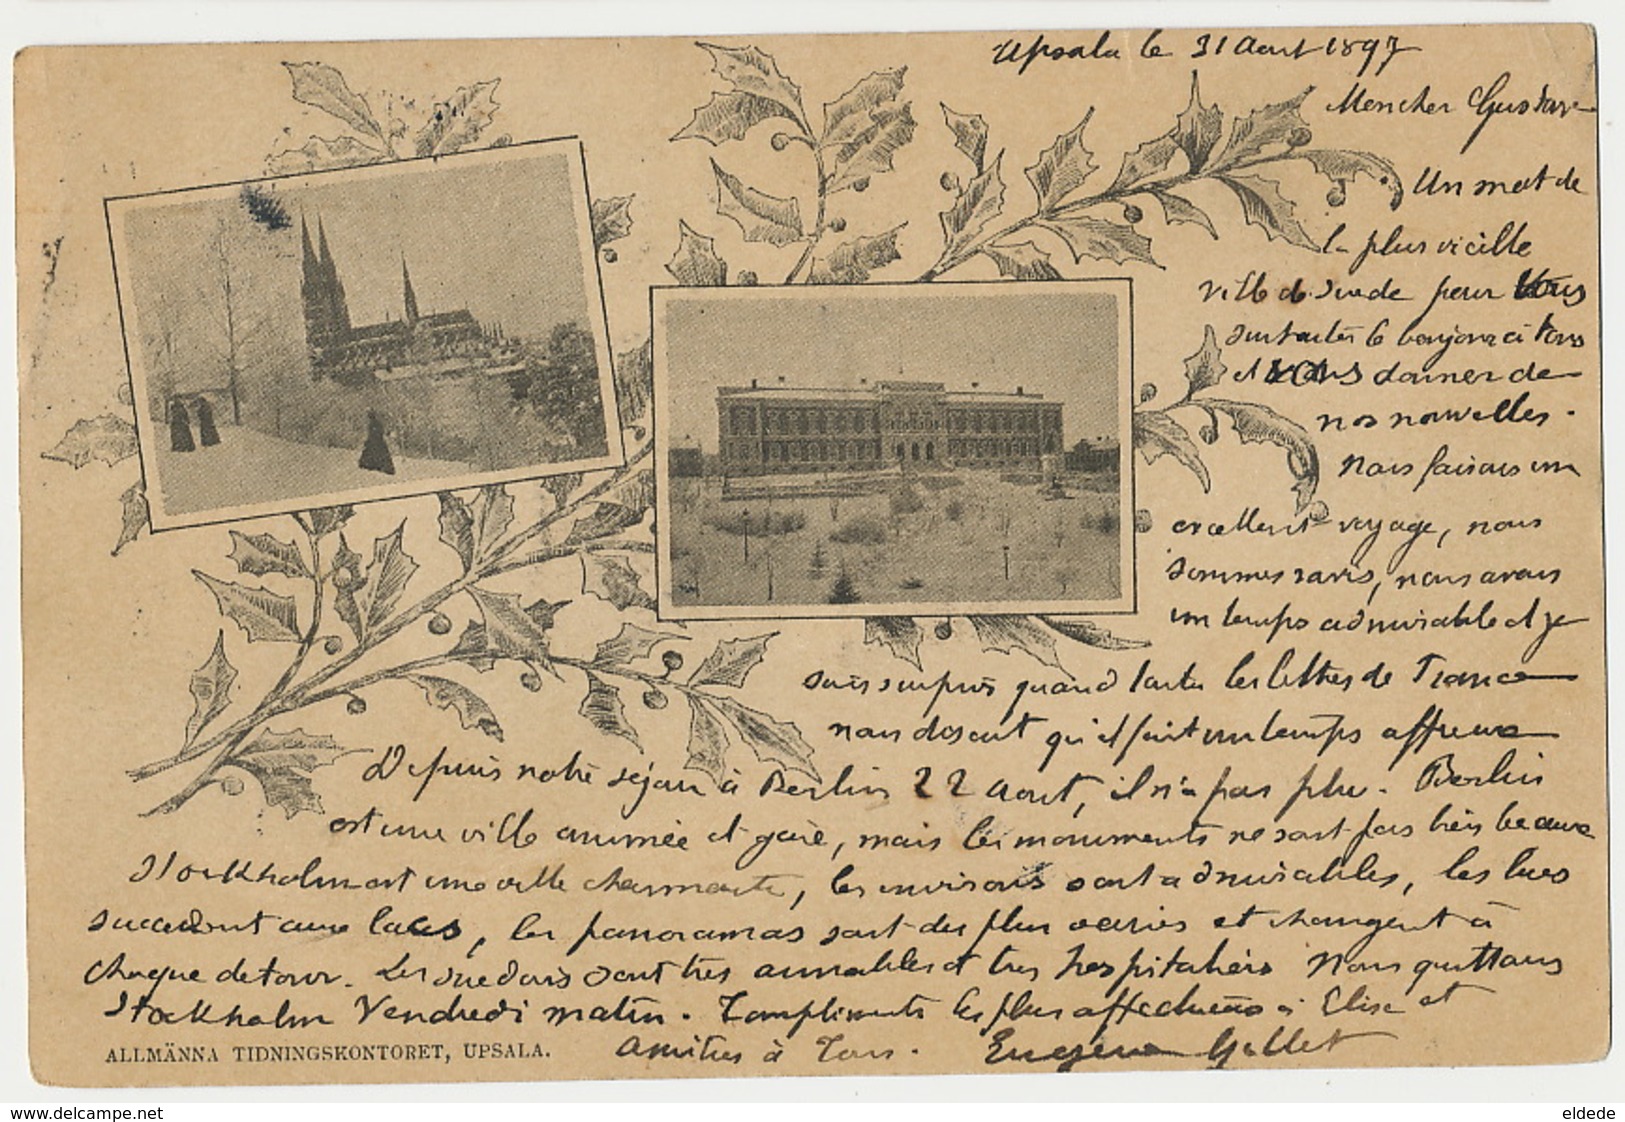 Upsala le 31 Aout 1897
Mon cher Gustave
Un mot de
la plus vieille
ville de Suede pour vous
souhaiter le bonjour à tous
et vous donner de
nos nouvelles.
Nous faisons un
excellent voyage, nous
sommes ravis, nous avons
un temps admirable et je
suis surpris quand toutes les lettres de France
nous disent qu'il fait un temps affreux
Depuis notre séjour à Berlin 22 Aout, il n'a pas plu. Berlin
est une ville animée et gaie, mais les monuments ne sont pas très beaux
Stockholm est une ville charmante, les environs sont admirables, les lacs
succedent aux lacs, les panoramas sont des plus variés et changent à
chaque detour. Les suedois sont très aimables et très hospitaliers Nous quittons
Stockholm Vendredi matin. Compliments les plus affectueux à Elise et
amitiés à Tous. Eugène Gillet
ALLMÄNNA TIDNINGSKONTORET, UPSALA.
www.delcampe.net
eldede